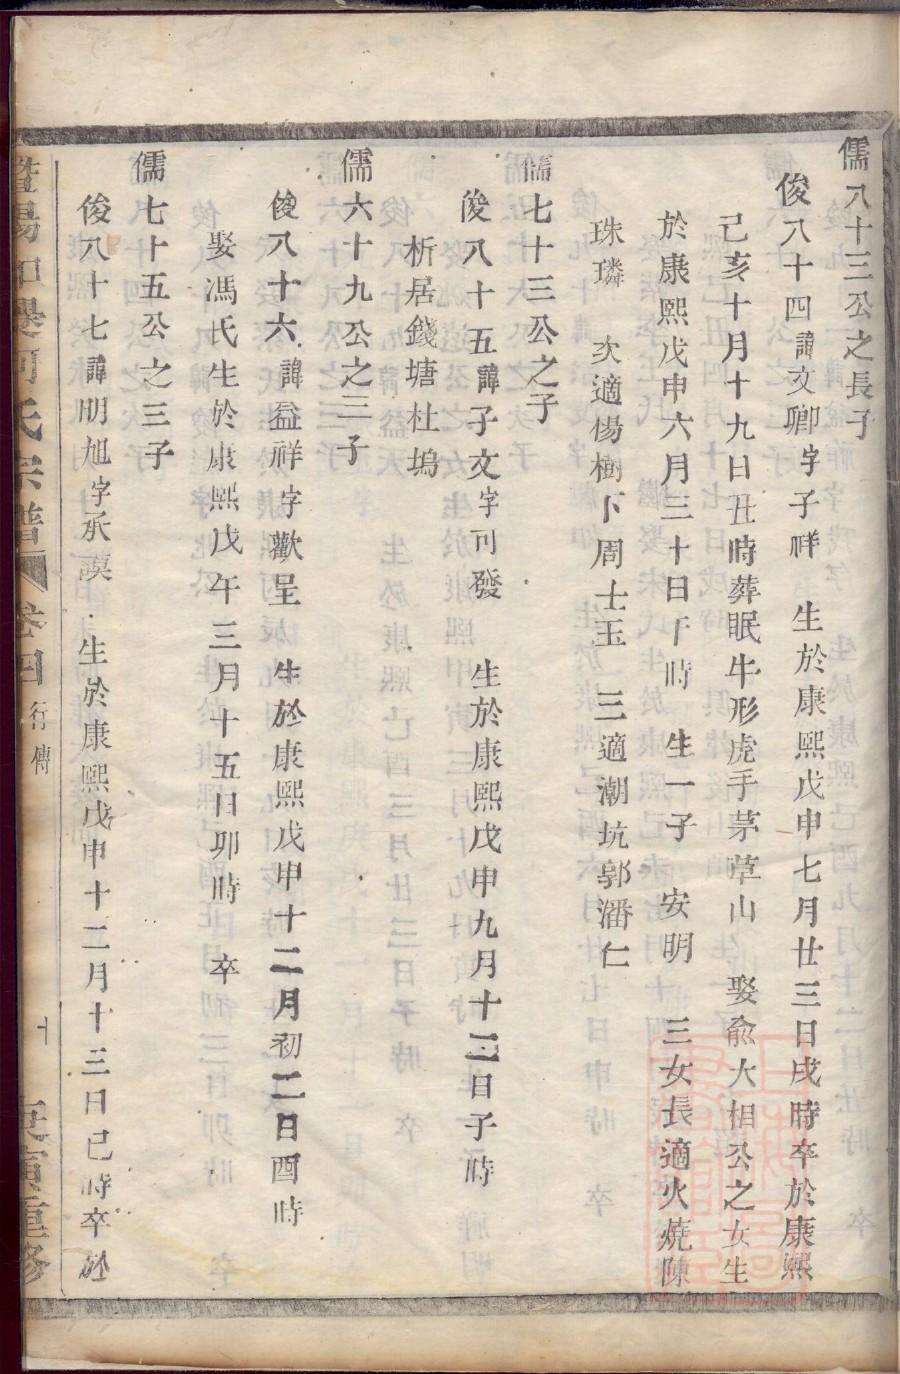 儒八十三公之長子
俊八十四諱文卿字子祥 生於康熙戊申七月廿三日戌時卒於康熙
己亥十月十九日丑時葬眠牛形虎手茅草山 娶俞大相公之女生
於康熙戊申六月三十日午時 生一子 安明 三女長適火燒陳
珠璘 次適楊樹下周士玉 三適潮坑郭潘仁
儒七十三公之子
俊八十五諱子文字可發 生於康熙戊申九月十二日子時
析居錢塘杜塢
儒六十九公之三子
俊八十六諱益祥字歡呈 生於康熙戊申十二月初二日酉時
娶馮氏生於康熙戊午三月十五日卯時 卒
儒七十五公之三子
俊八十七諱明旭字承謨 生於康熙戊申十二月十三日巳時卒於
氏宗譜 卷四 行傳 十 寅重修